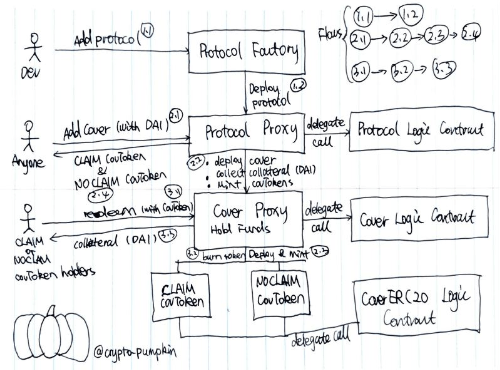 Flows
1.1 1.2
2.1 2.2 2.3 2.4
3.1 3.2 3.3
Dev
Add protocol 1.1
Protocol Factory
Deploy 1.2
protocol
Anyone
Add Cover (with DAI) 2.1
Protocol Proxy
delegate
call
Protocol Logic Contract
CLAIM CovToken
&
NOCLAIM CovToken
2.4
2.2 · deploy cover
· collect collateral (DAI)
· mint covTokens
3.1
redeem (with CovToken)
Cover Proxy
Hold Funds
delegate
call
Cover Logic Contract
collateral (DAI) 3.3
CLAIM
or
NOCLAIM
covToken holders
3.2 burn token Deploy & mint 2.3
CLAIM
CovToken
NOCLAIM
CovToken
CoverERC20 Logic
Contract
delegate call
@crypto-pumpkin